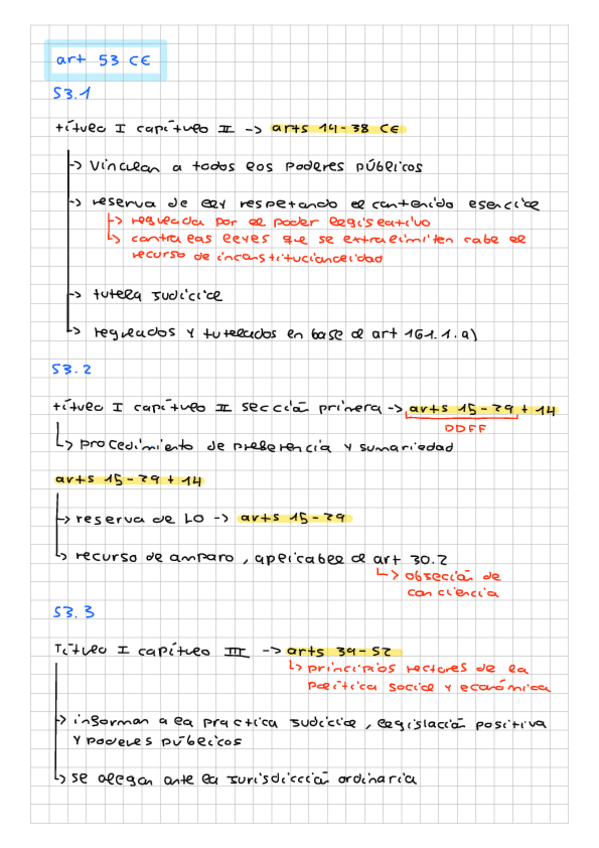 art 53 CE
53.1
título I capítulo II -> arts 14-38 CE
-> vinculan a todos los poderes públicos
-> reserva de ley respetando el contenido esencial
-> regulada por el poder legislativo
-> contra las leyes que se extralimiten cabe el
recurso de inconstitucionalidad
-> tutela judicial
-> regulados y tutelados en base al art 161.1.a)
53.2
título I capítulo II sección primera -> arts 15-29 + 14
DDFF
-> procedimiento de preferencia y sumariedad
arts 15-29 + 14
-> reserva de LO -> arts 15-29
-> recurso de amparo, aplicable al art 30.2
-> objeción de
conciencia
53.3
Título I capítulo III -> arts 39-52
-> principios rectores de la
política social y económica
-> informan a la practica judicial, legislación positiva
y poderes públicos
-> se alegan ante la jurisdicción ordinaria